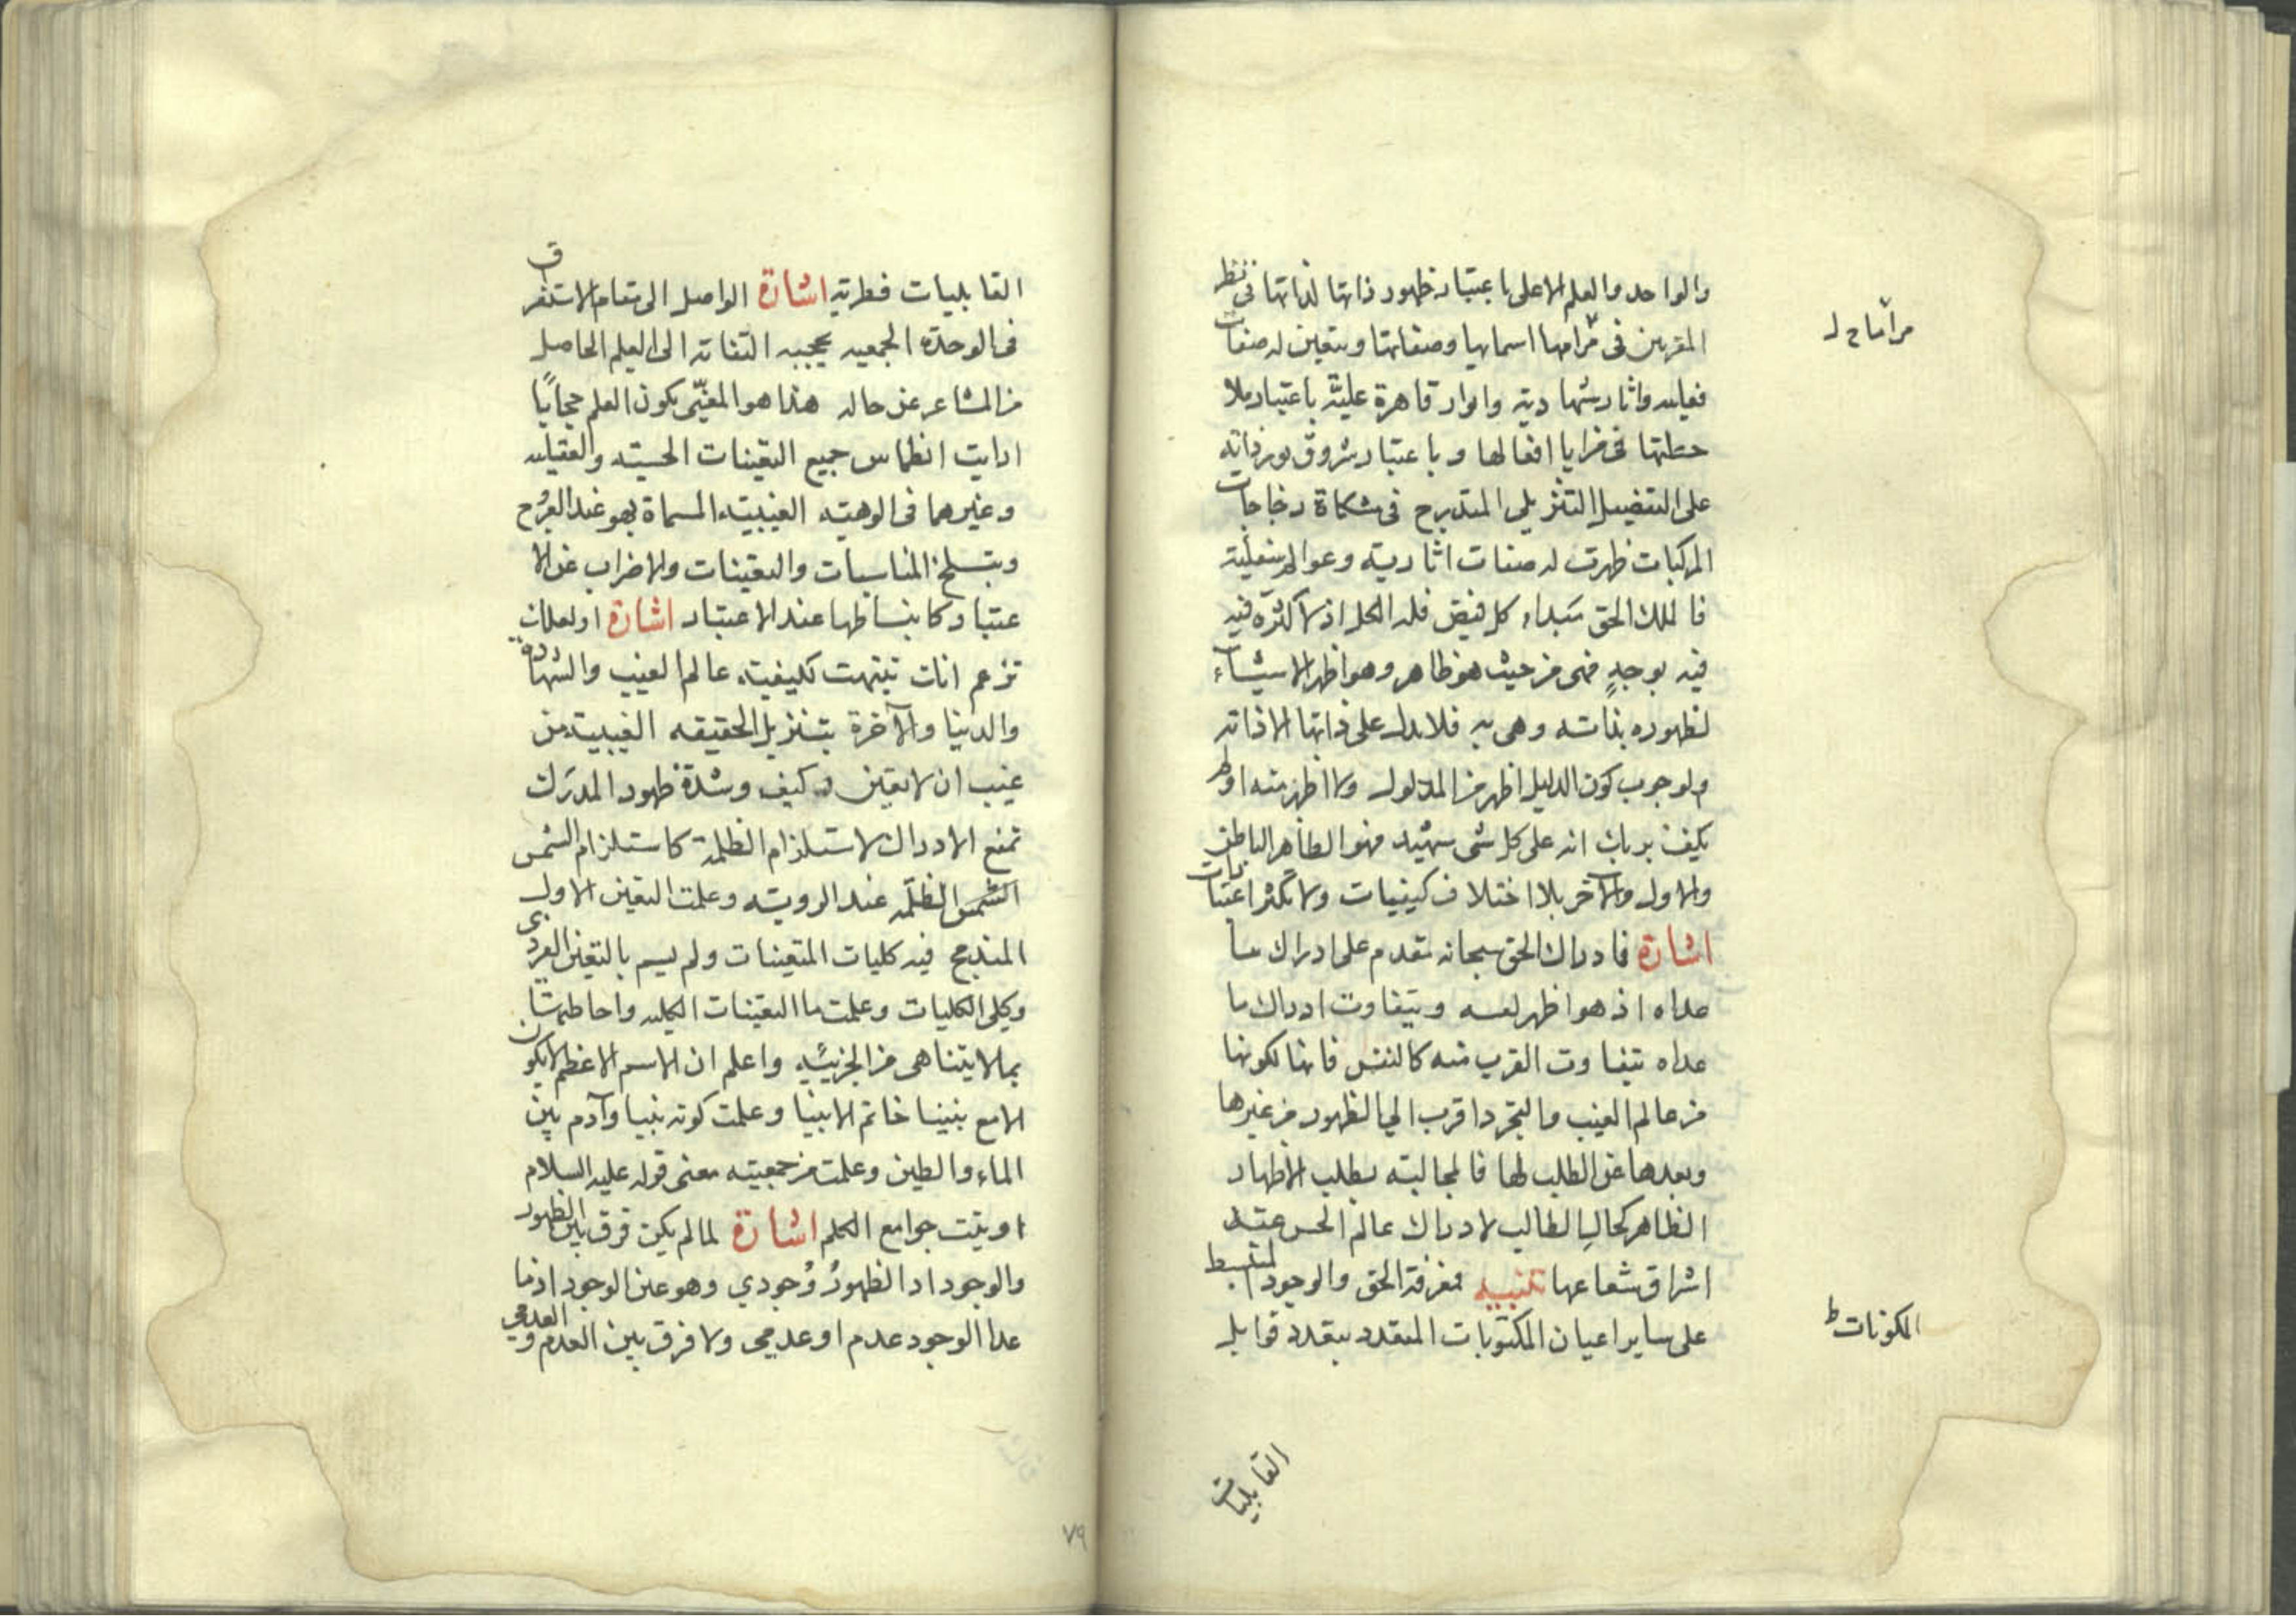 والواحد والعلم الاعلى باعتبار ظهور ذاتها لذاتها فى نظر
المقربين فى مراتبها اسمايها وصفاتها ويتعين له صفات
فعليه واثار شهاديته وانوار قاهرة عليّة باعتبار ملا
حظتها فى مرايا افعالها وباعتبار شروق نور ذاته
على التفضيل التنزيلي المتدرج فى مشكاة زجاجات
المركبات ظهرت له صفات اثاريته وعوالم سفليّة
فالملك الحق مبداء كل فيض فله الكل اذ لا كثرة فيه
فيه بوجهٍ فهى من حيث هو ظاهر وهو اظهر الاشياء
لظهوره بذاته وهى به فلا يدل على ذاتها الا ذاته
ولوجوب كون الدليل اظهر من المدلول ولا اظهر منه اولم
يكف بربك انه على كل شى شهيد فهو الظاهر الباطن
والاول والآخر بلا اختلاف كيفيات ولا تكثر اعتبارات
اشارة فادراك الحق سبحانه مقدم على ادراك ما
عداه اذ هو اظهر لنفسه ويتفاوت ادراك ما
عداه بتفاوت القرب منه كالنفس فانها لكونها
من عالم الغيب والتجرد اقرب الى الظهور من غيرها
وبعدها عن الطلب لها فالمجالبته بطلب الاظهار
الظاهر كحال الطالب لادراك عالم الحس عند
اشراق شعاعها تنبيه معرفة الحق والوجود المنبسط
على ساير اعيان المكتوبات المتعدد بتعدد قوابل
مراتبها ح ل
المكونات ط
القابليات
القابليات فطريته اشارة الواصل الى مقام الاستغراق
فى الوحدة الجمعيه يحجبه التفاته الى العلم الحاصل
من المشاعر عن حاله هذا هو المعنىّ بكون العلم حجابًا
ارايت انطماس جميع التعينات الحسيته والعقليه
وغيرهما فى الوهيته الغيبيته المسماة بهو عند العروج
وبتسلخ المناسبات والتعينات والاضراب عن الا
عتبار وكانبساطها عند الاعتبار اشارة اولعلك
تزعم انك تنبهت لكيفيته عالم الغيب والشهادة
والدنيا والآخرة بتنزيل الحقيقه الغيبيته من
غيب ان لا تعين وكيف وشدة ظهور المدرك
تمنع الادراك لاستلزام الظلمة كاستلزام الشمس
الشمس الظلمه عند الرويته وعلمت التعين الاول
المندمج فيه كليات المتعينات ولم يسم بالتعين الفردى
وكلى الكليات وعلمت ما التعينات الكليه واحاطتها
بما لا يتناهى من الجزئيه واعلم ان الاسم الاعظم لا يكون
الا مع نبينا خاتم الانبيا وعلمت كونه نبيا وآدم بين
الماء والطين وعلمت من جمعيته معنى قوله عليه السلام
اوتيت جوامع الكلم اشارة لما لم يكن فرق بين الظهور
والوجود اذ الظهورُ وُجودي وهو عين الوجود اذ ما
عدا الوجود عدم او عدمى ولا فرق بين العدم والعدمى
٧٩